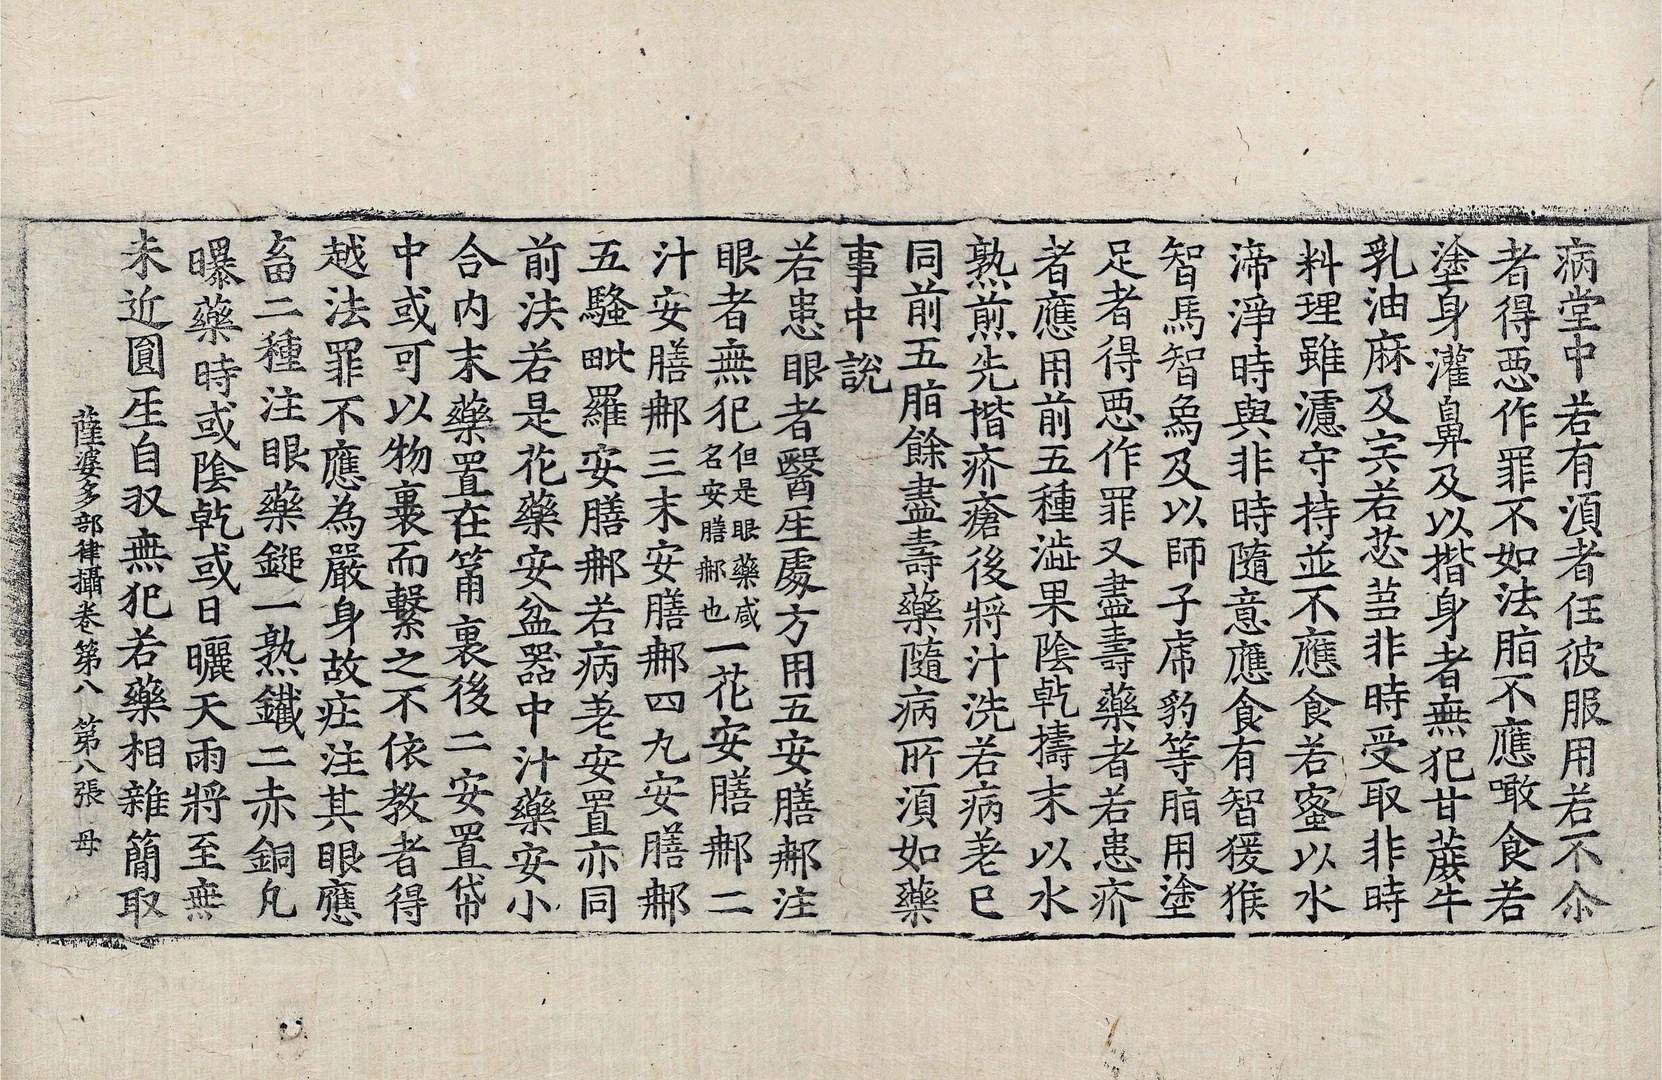 病堂中若有湏者任彼服用若不尒
者得惡作罪不如法脂不應噉食若
塗身灌鼻及以揩身者無犯甘䕨牛
乳油麻及宍若苾蒭非時受取非時
料理雖濾守持並不應食若蜜以水
渧淨時與非時隨意應食有智猨猴
智馬智象及以師子虎豹等脂用塗
足者得惡作罪又盡壽藥者若患疥
者應用前五種澁果陰乹擣末以水
熟煎先揩疥瘡後將汁洗若病差已
同前五脂餘盡壽藥隨病所湏如藥
事中說
若患眼者醫𤯔處方用五安膳𨚗注
眼者無犯但是眼藥咸名安膳𨚗也一花安膳𨚗二
汁安膳𨚗三末安膳𨚗四丸安膳𨚗
五騷毗羅安膳𨚗若病差安置亦同
前法若是花藥安盆器中汁藥安小
合内末藥置在筩裏後二安置帒
中或可以物裹而繫之不依教者得
越法罪不應為嚴身故疰注其眼應
畜二種注眼藥鎚一熟鐵二赤銅凡
曝藥時或陰乹或日曬天雨將至無
未近圎𤯔自収無犯若藥相雜簡取
薩婆多部律攝卷第八 第八張 母